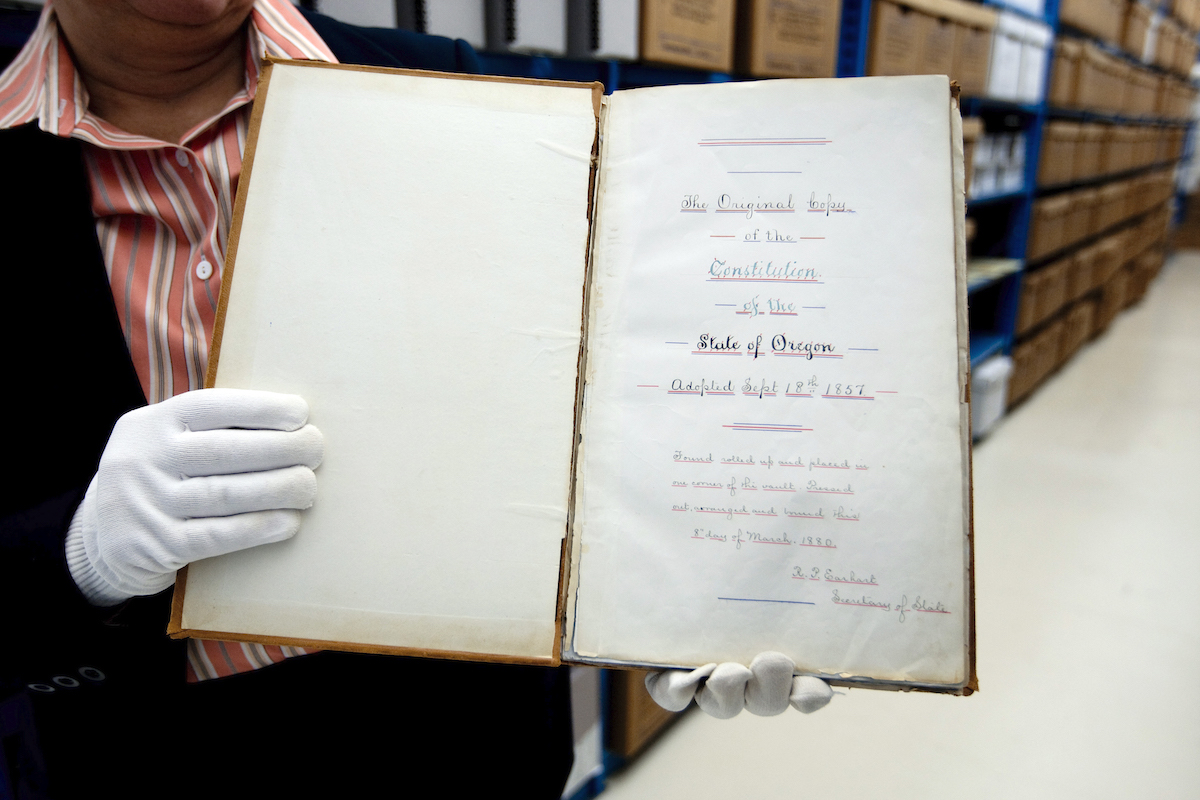 The Original Copy
of the
Constitution.
of the
State of Oregon
Adopted Sept 18th 1857
Found rolled up and placed in
one corner of the vault. Pressed
out, arranged and bound this
8th day of March. 1880.
R. P. Earhart
Secretary of State